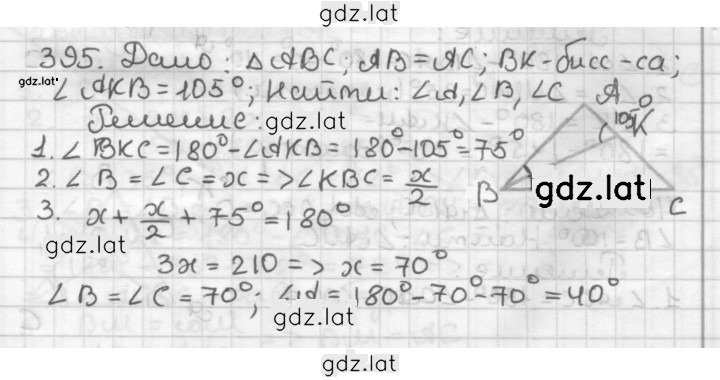 gdz.lat
395. Дано: △ ABC; AB = AC; BK - бисс-са;
gdz.lat
∠ AKB = 105°; Найти: ∠A, ∠B, ∠C
Решение:
gdz.lat
A
105°
K
B
C
gdz.lat
1. ∠ BKC = 180° - ∠AKB = 180° - 105° = 75°
2. ∠ B = ∠ C = x => ∠ KBC = x/2
3. x + x/2 + 75° = 180°
gdz.lat
3x = 210 => x = 70°
∠ B = ∠ C = 70°; ∠A = 180° - 70° - 70° = 40°
gdz.lat
gdz.lat